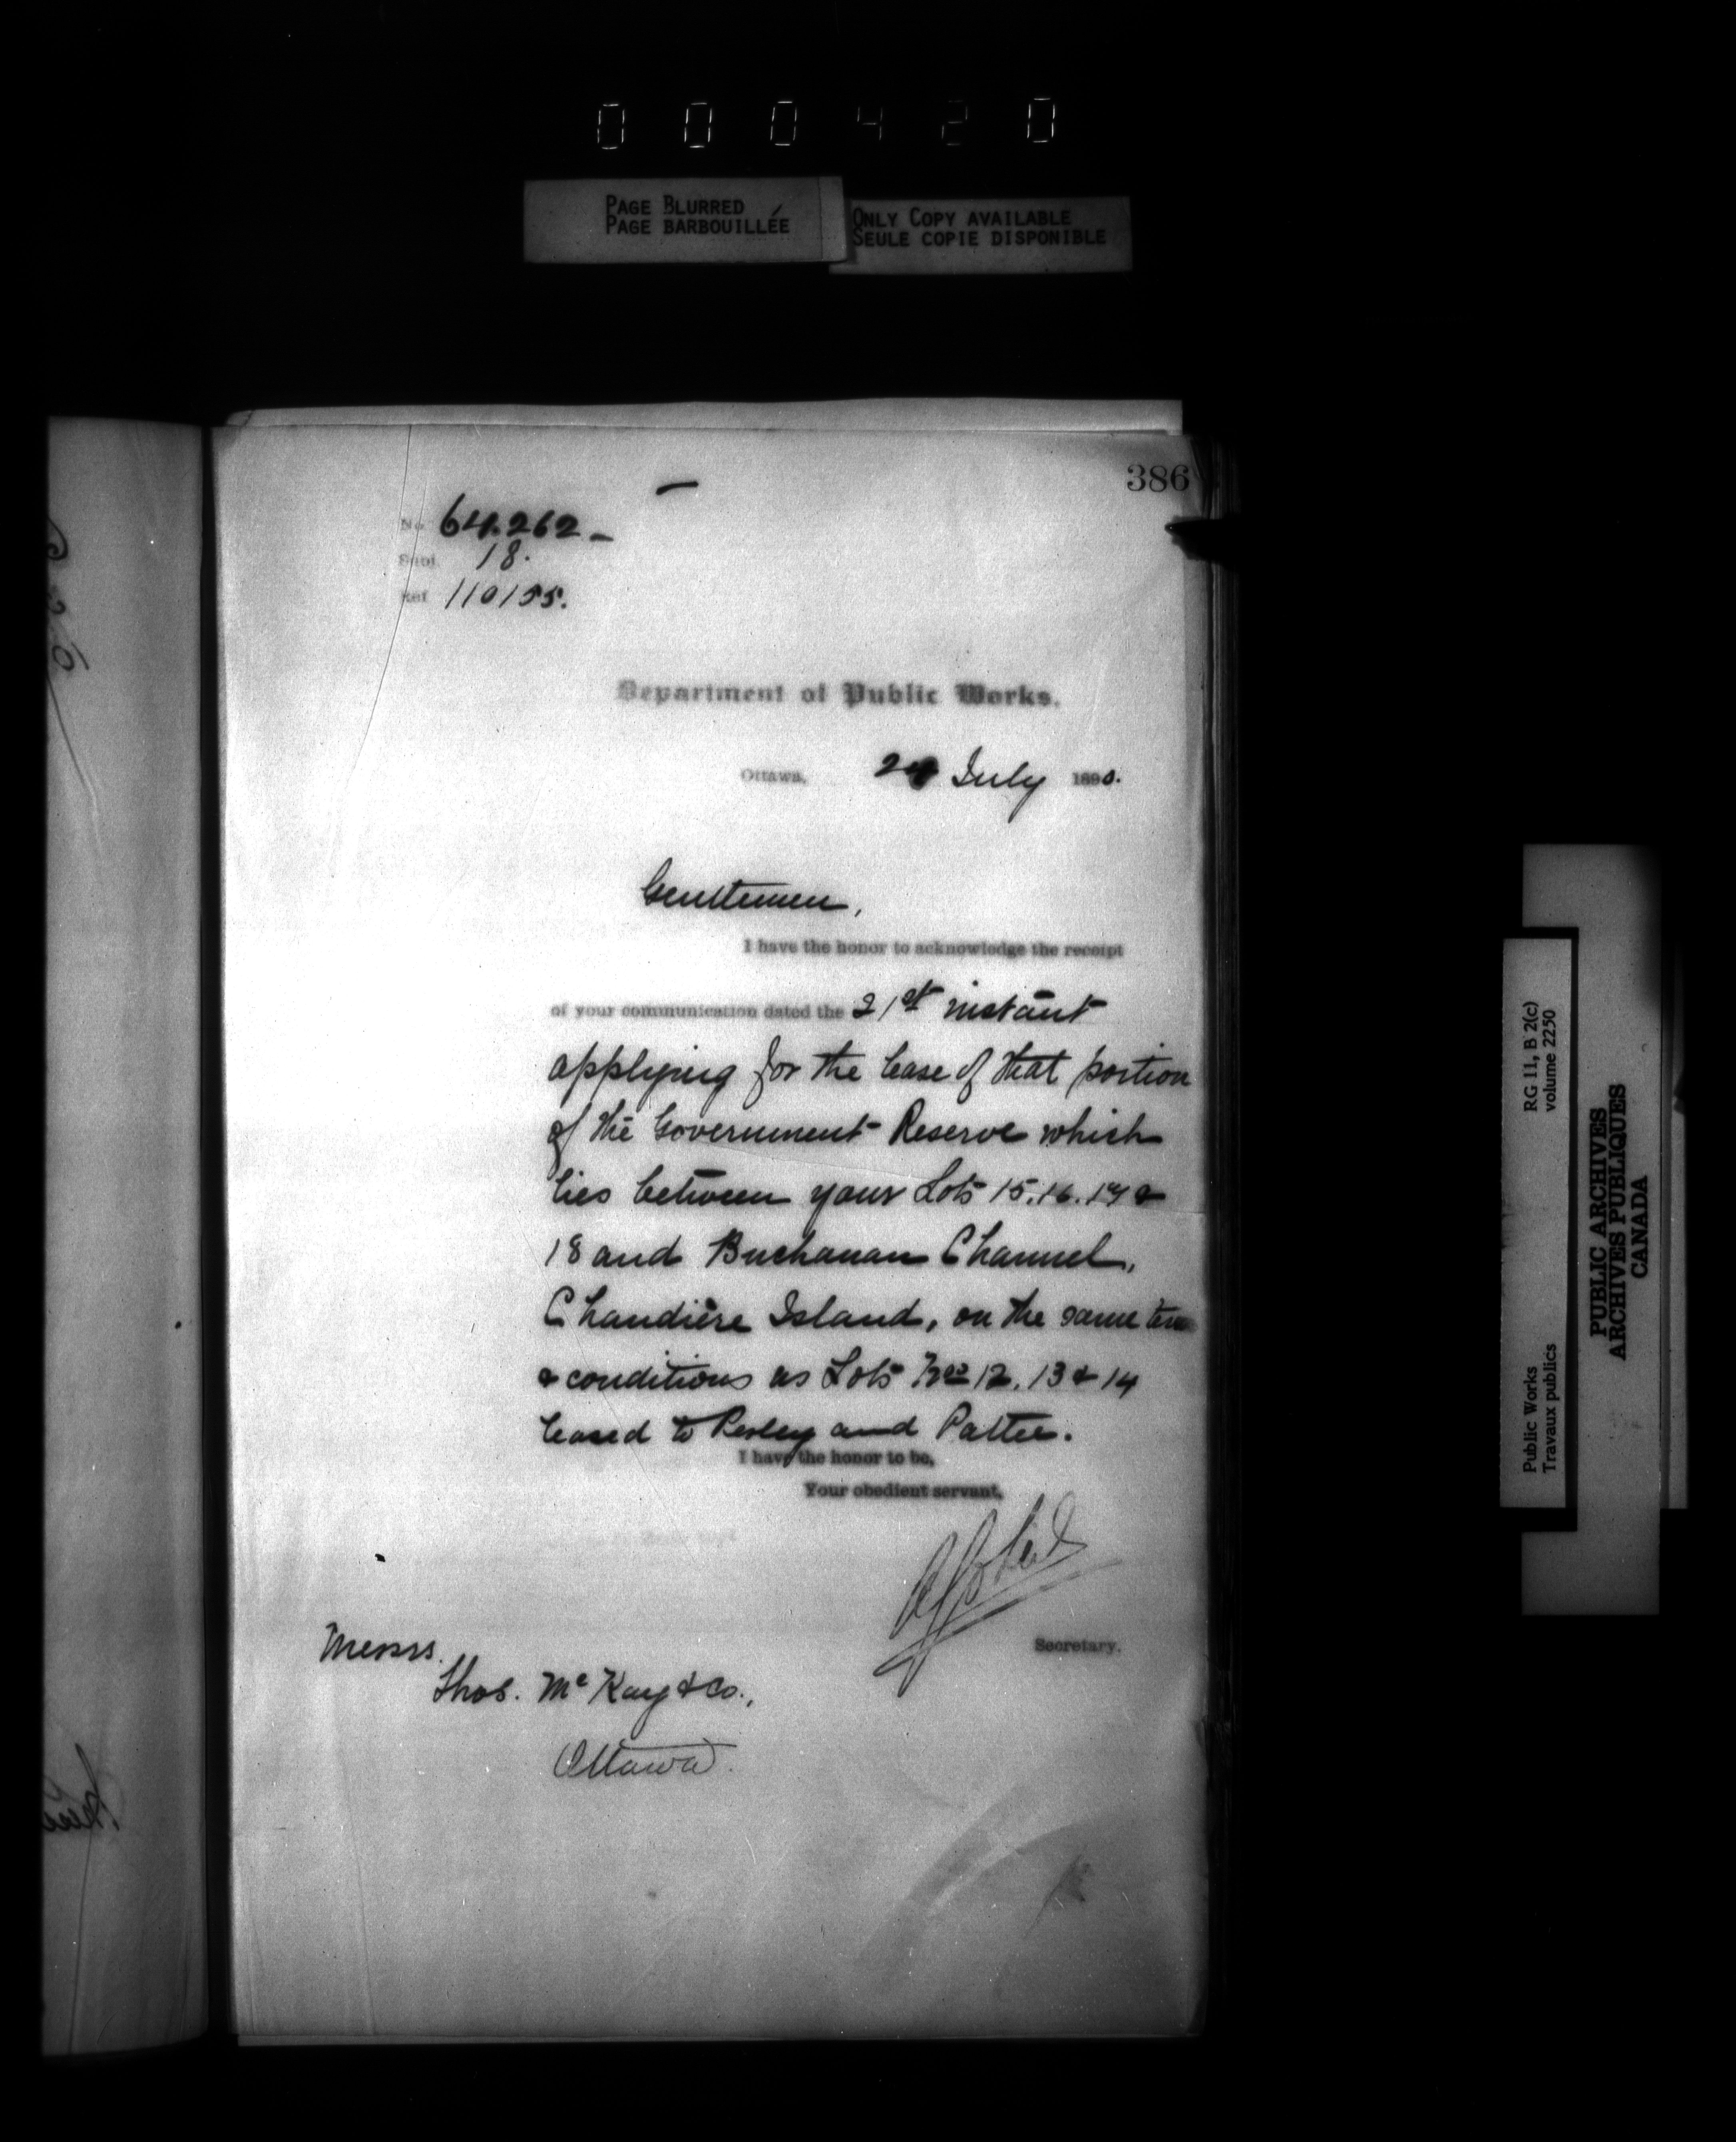 0 0 0 4 2 0
PAGE BLURRED
PAGE BARBOUILLÉE
ONLY COPY AVAILABLE
SEULE COPIE DISPONIBLE
386
No. 64.262 -
Subj. 18.
Ref. 110155.
Department of Public Works.
Ottawa, 24 July 1890.
Gentlemen,
I have the honor to acknowledge the receipt
of your communication dated the 21st instant
applying for the lease of that portion
of the Government Reserve which
lies between your Lots 15.16.17 &
18 and Buchanan Channel,
Chaudière Island, on the same
& conditions as Lots Nos 12, 13 & 14
leased to Perley and Pattee.
I have the honor to be,
Your obedient servant,
Secretary.
Messrs.
Thos. McKay & Co.,
Ottawa.
Public Works
Travaux publics
RG 11, B 2(c)
volume 2250
PUBLIC ARCHIVES
ARCHIVES PUBLIQUES
CANADA